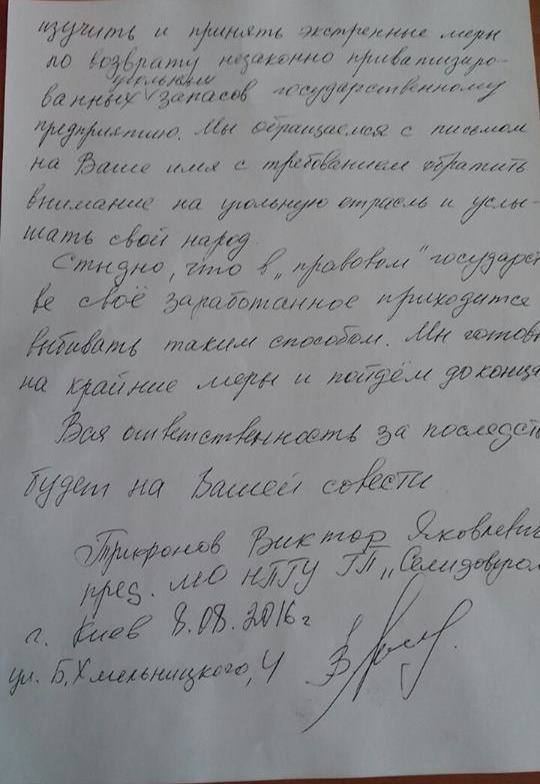 изучить и принять экстренные меры
по возврату незаконно приватизиро-
угольных
ванных запасов государственному
предприятию. Мы обращаемся с письмом
на Ваше имя с требованием обратить
внимание на угольную отрасль и услы-
шать свой народ.
Стыдно, что в „правовом" государст
ве своё заработанное приходится
выбивать таким способом. Мы готовы
на крайние меры и пойдём до конца
Вся ответственность за последст
будет на Вашей совести
Виктор Яковлевич
пред. МО НПГУ ГП „Селидовугол
г. Киев 8.08.2016г
ул. Б.Хмельницкого, 4